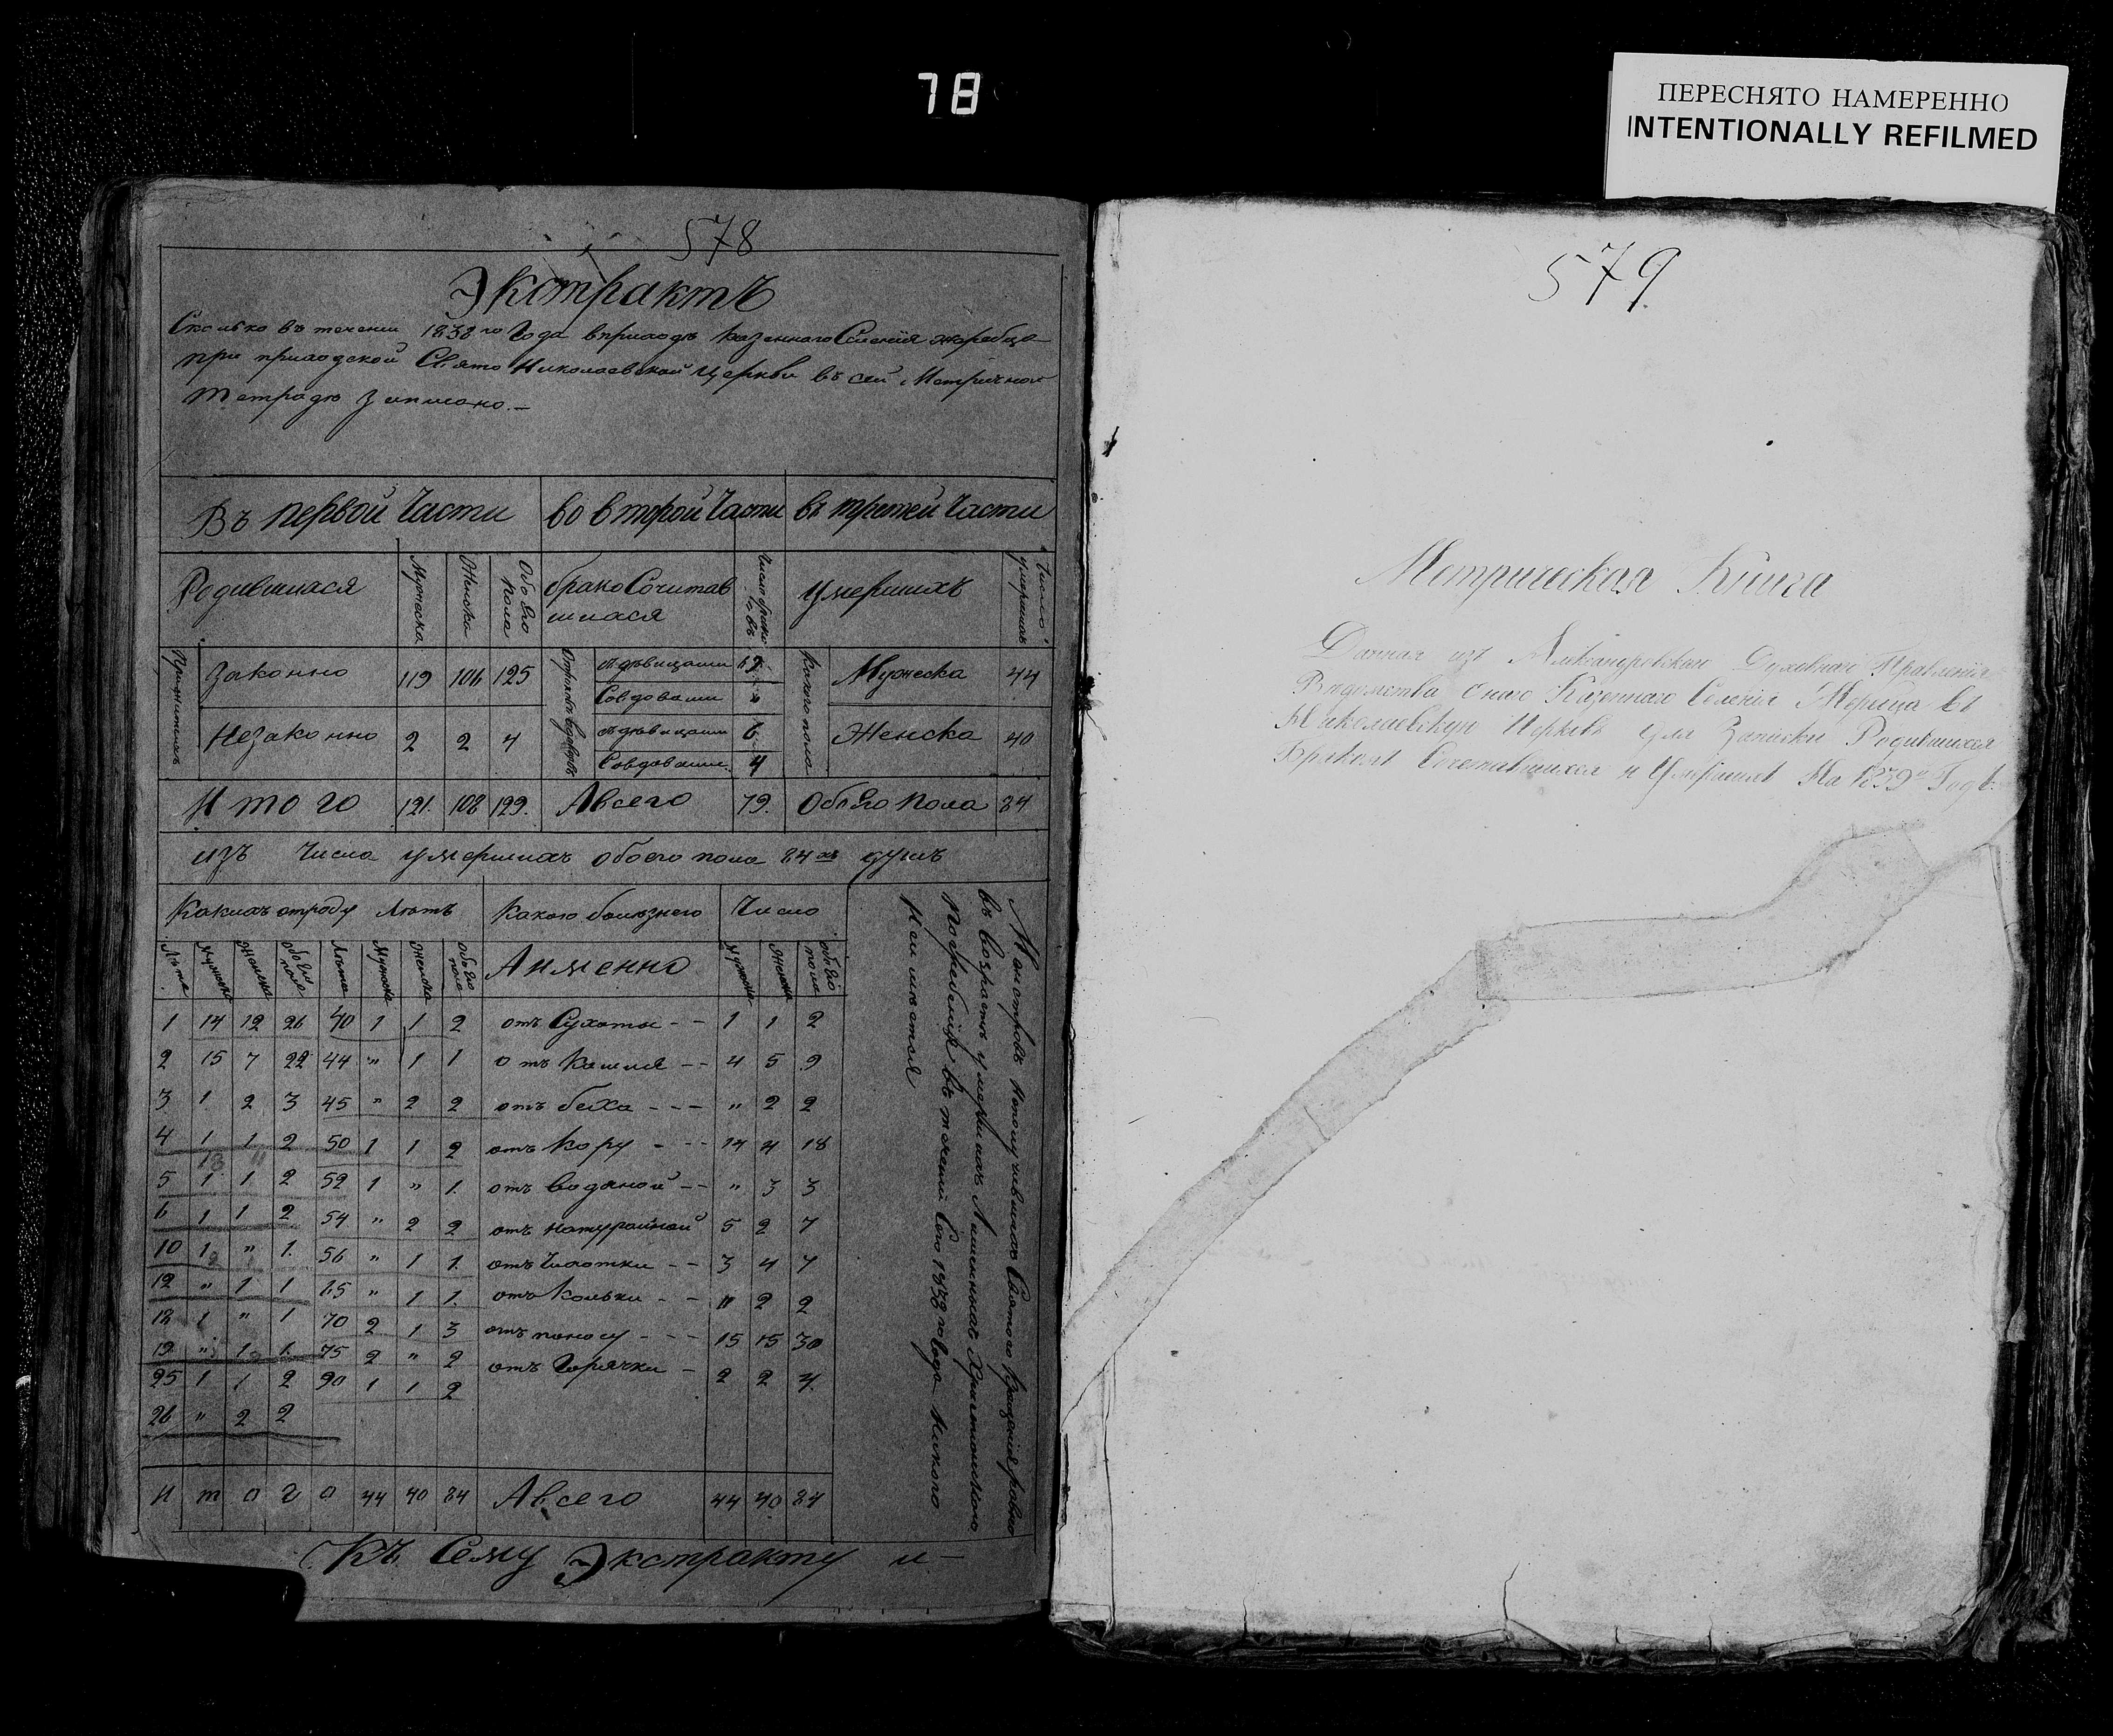 78
ПЕРЕСНЯТО НАМЕРЕННО
INTENTIONALLY REFILMED
578
Экстрактъ
Сколько въ течении 1838го Года въ приходѣ казеннаго Селенія Жеребца
при приходской Свято Николаевской Церкви въ сей Метричной
тетрадѣ записано. —
Въ первой Части во второй Части въ третей Части
Родившихся Мужеска Женска Обоего пола бракоСочитав Число браковъ Умершихъ Число умершихъ
шихся
Законно 119 106 125 съ дѣвицами Мужеска 44
Совдовами
Незаконно 2 2 4 съ дѣвицами 6 Женска 40
Совдовами 4
Итого 121. 108 129. Авсего 79. Обоего пола 84
изъ Числа умершихъ обоего пола 84хъ душъ
Какихъ отроду лѣтъ Какою болѣзнею Число
Лѣта Мужеска Женска обоего пола Лѣта Мужеска Женска обоего пола Аименно Мужеска Женска обоего пола
1 14 12 26 40 1 1 2 отъ Сухоты - - 1 1 2
2 15 7 22 44 " 1 1 отъ Кашля - - 4 5 9
3 1 2 3 45 " 2 2 отъ беха - - - " 2 2
4 1 1 2 50 1 1 2 отъ Кору - - - 14 4 18
5 1 1 2 52 1 " 1. отъ водяной - - " 3 3
6 1 1 2 54 " 2 2 отъ натуральной 5 2 7
10 1 " 1. 56 " 1 1. отъ Чихотки - - 3 4 7
12 " 1 1 65 " 1 1. отъ Кольки - - " 2 2
18 1 " 1 70 2 1 3 отъ поносу - - - 15 15 30
19 " 1 1. 75 2 " 2 отъ Горячки - 2 2 4.
25 1 1 2 90 1 1 2
26 " 2 2
И т о г о 44 40 84 Авсего 44 40 84
Къ Сему Экстракту и —
Святого Крещенія равно
въ возрастѣ умершихъ Алишенныхъ Християнскаго
Погребенія въ течении Сего 1838го Года никого
Неимѣется
579.
Метрическая Книга
Данная изъ Александровскаго Духовнаго Правленія
Вѣдомства Онаго Казеннаго Селенія Жеребца въ
Николаевскую Церковь для Записки Родившихся
Бракомъ Сочетавшихся и Умершихъ На 1839й Годъ.